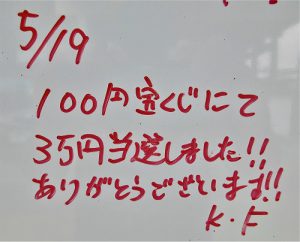 5/19
100円宝くじにて
3万円当選しました!!
ありがとうございます!!
K.F